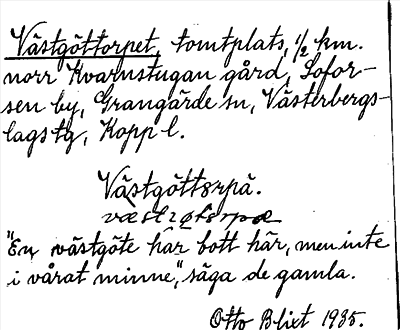 Västgöttorpet, tomtplats, ½ km.
norr Kvarnstugan gård, Sofor-
sen by, Grangärde sn, Västerbergs-
lags tg, Kopp l.
Västgöttørpä.
"En västgöte har bott här, men inte
i vårat minne", säga de gamla.
Otto Blixt 1935.